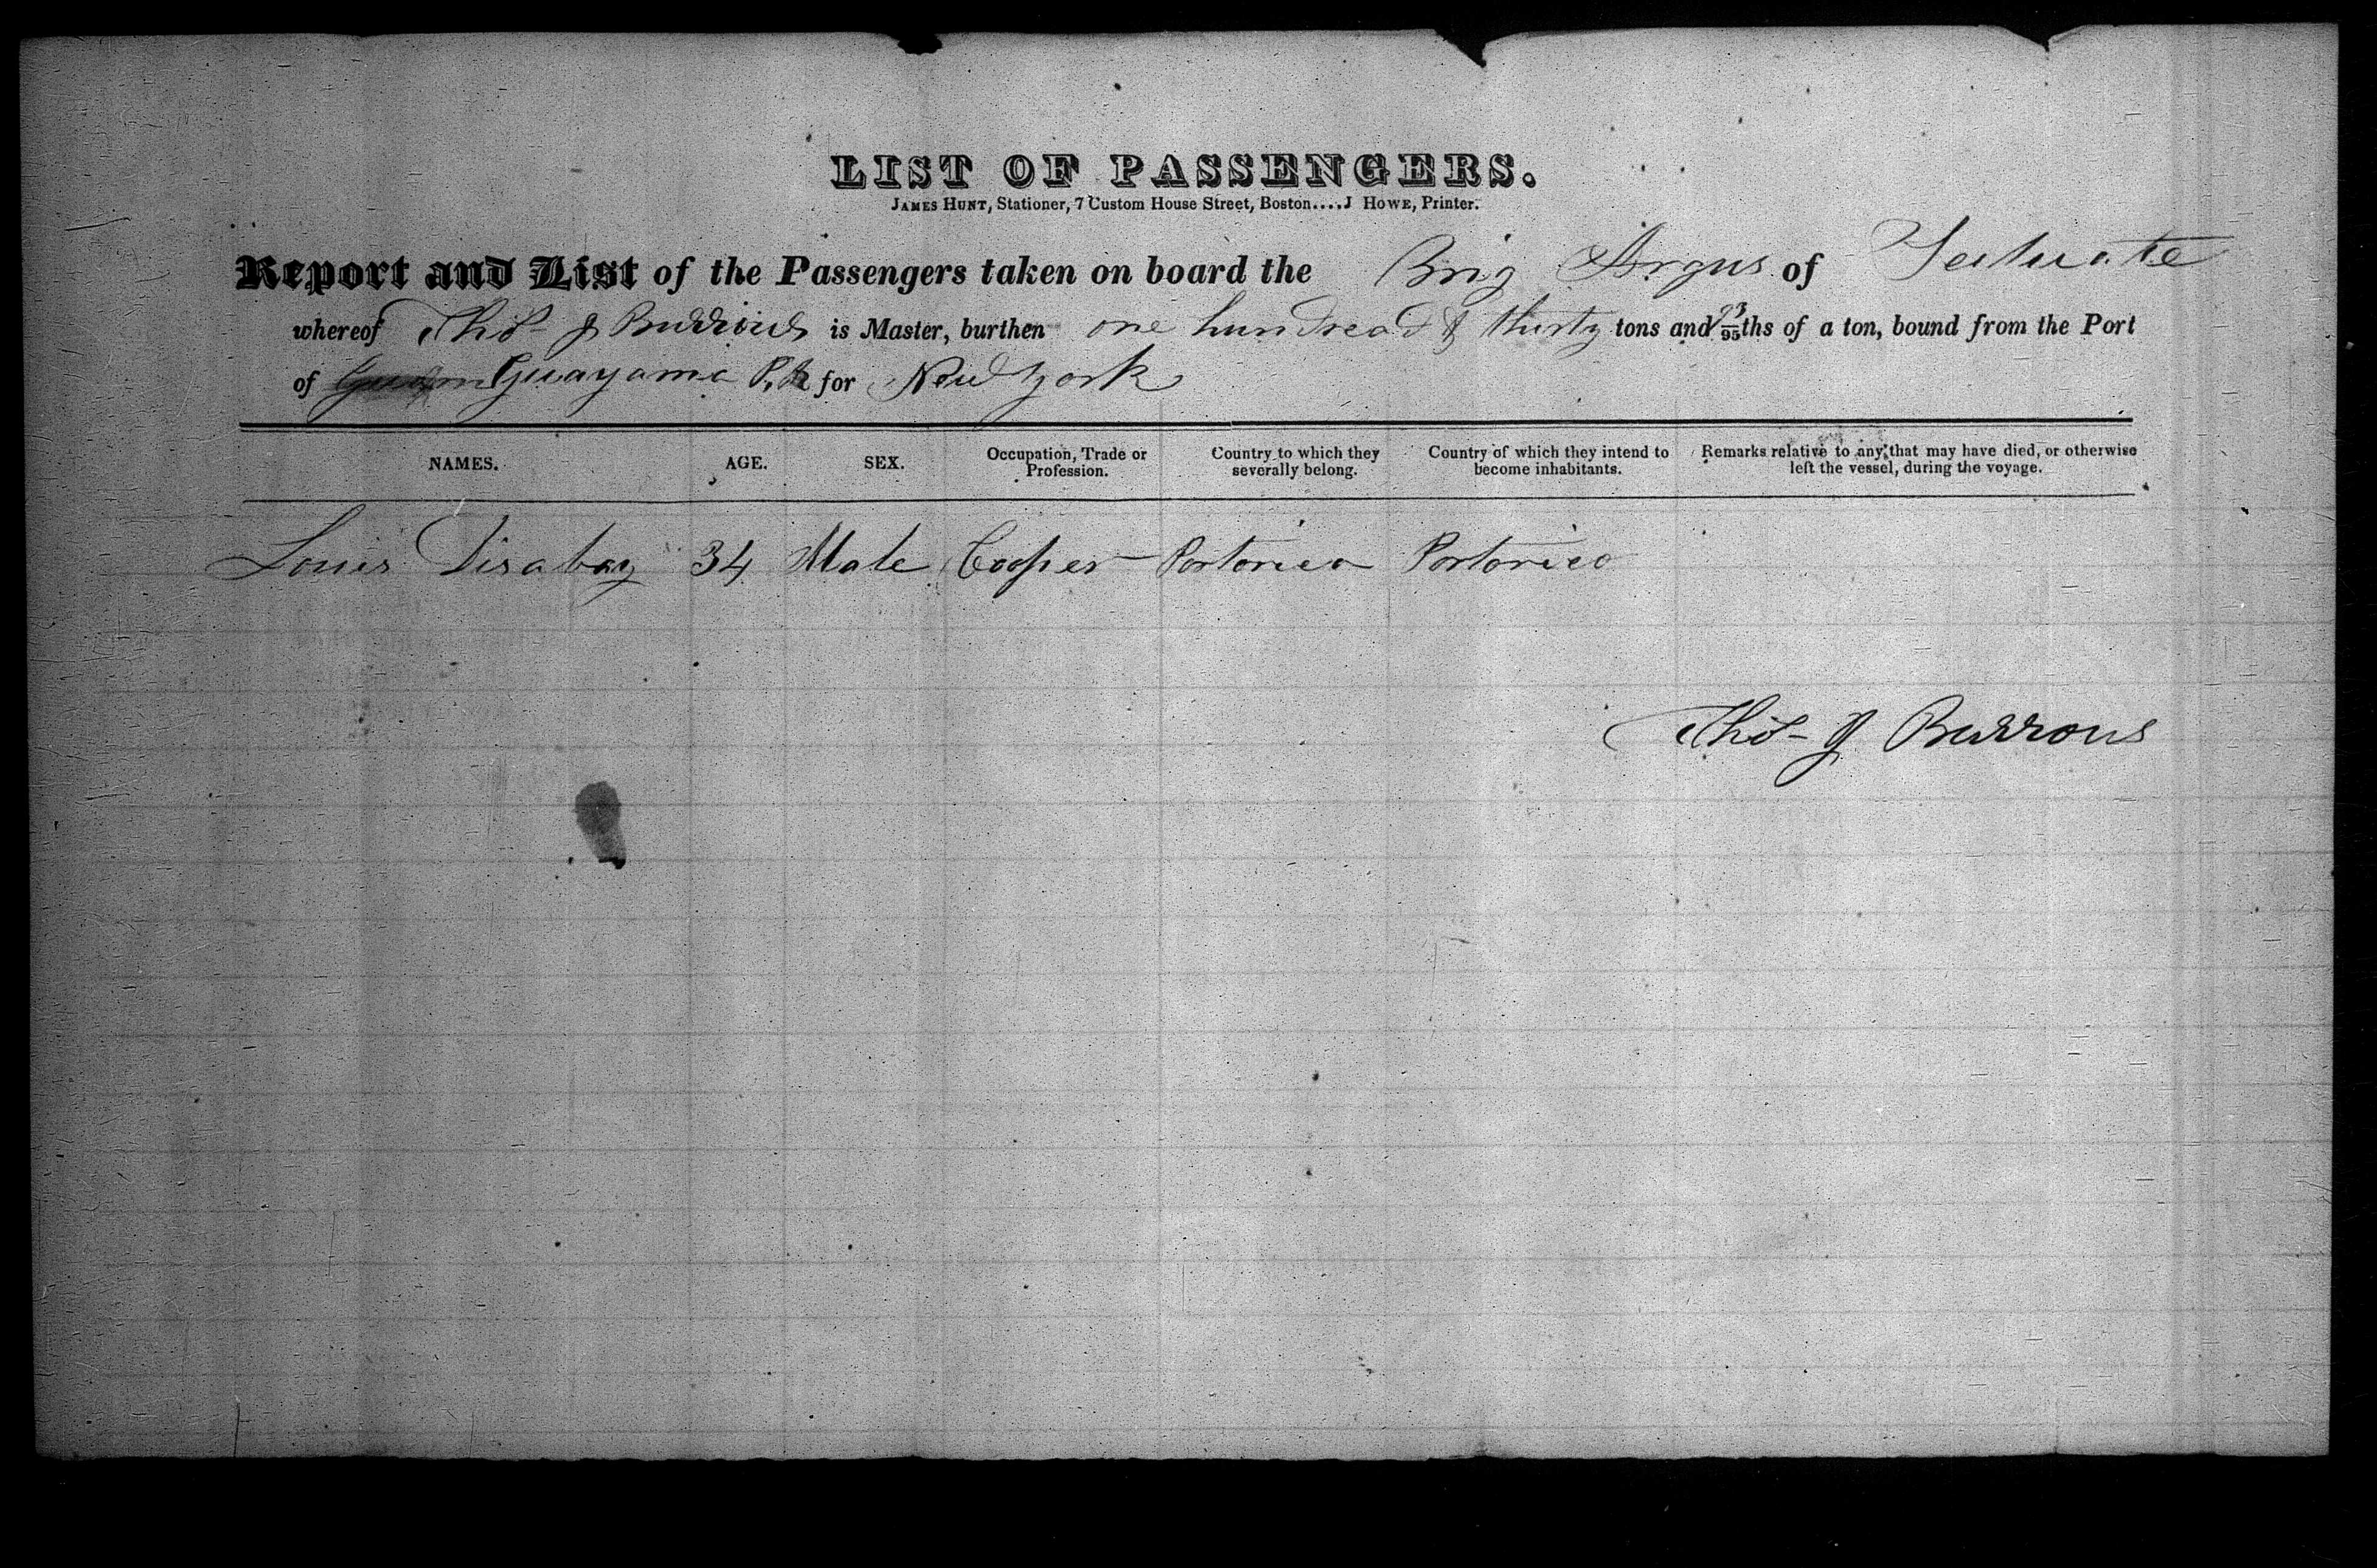 LIST OF PASSENGERS.
JAMES HUNT, Stationer, 7 Custom House Street, Boston....J HOWE, Printer.
Report and List of the Passengers taken on board the Brig Argus of Scituate
whereof Thos J Burrows is Master, burthen one hundread & thirty tons and 93/95ths of a ton, bound from the Port
of Guayama P, R for New York
NAMES. AGE. SEX. Occupation, Trade or Profession. Country to which they severally belong. Country of which they intend to become inhabitants. Remarks relative to any that may have died, or otherwise left the vessel, during the voyage.
Louis 34 Male Cooper Portorico Portorico
Thos J Burrows